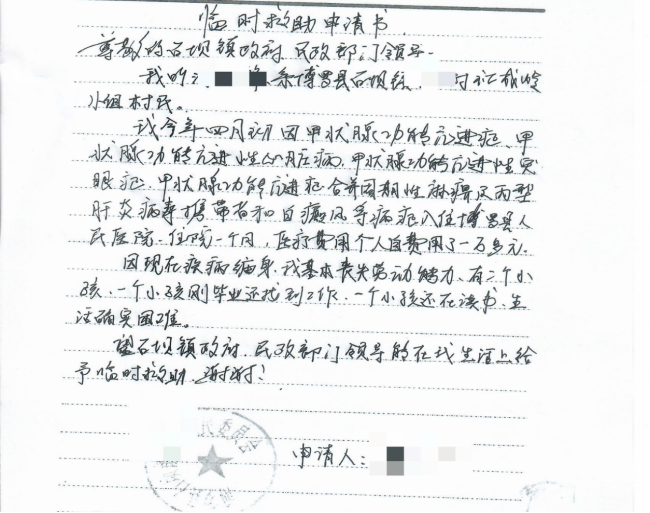 临时救助申请书
尊敬的石坝镇政府民政部门领导:
我叫: 系博罗县石坝镇 村
小组村民。
我今年四月初因甲状腺功能亢进症、甲
状腺功能亢进性心脏病、甲状腺功能亢进性突
眼症、甲状腺功能亢进症合并周期性麻痹及丙型
肝炎病毒携带者和白癜风等病症入住博罗县人
民医院。住院一个月,医疗费用个人自费用了一万多元。
因现在疾病缠身,我基本丧失劳动能力,有二个小
孩,一个小孩刚毕业还找到工作,一个小孩还在读书,生
活确实困难。
望石坝镇政府、民政部门领导能在我生活上给
予临时救助,谢谢!
民委员会
申请人: